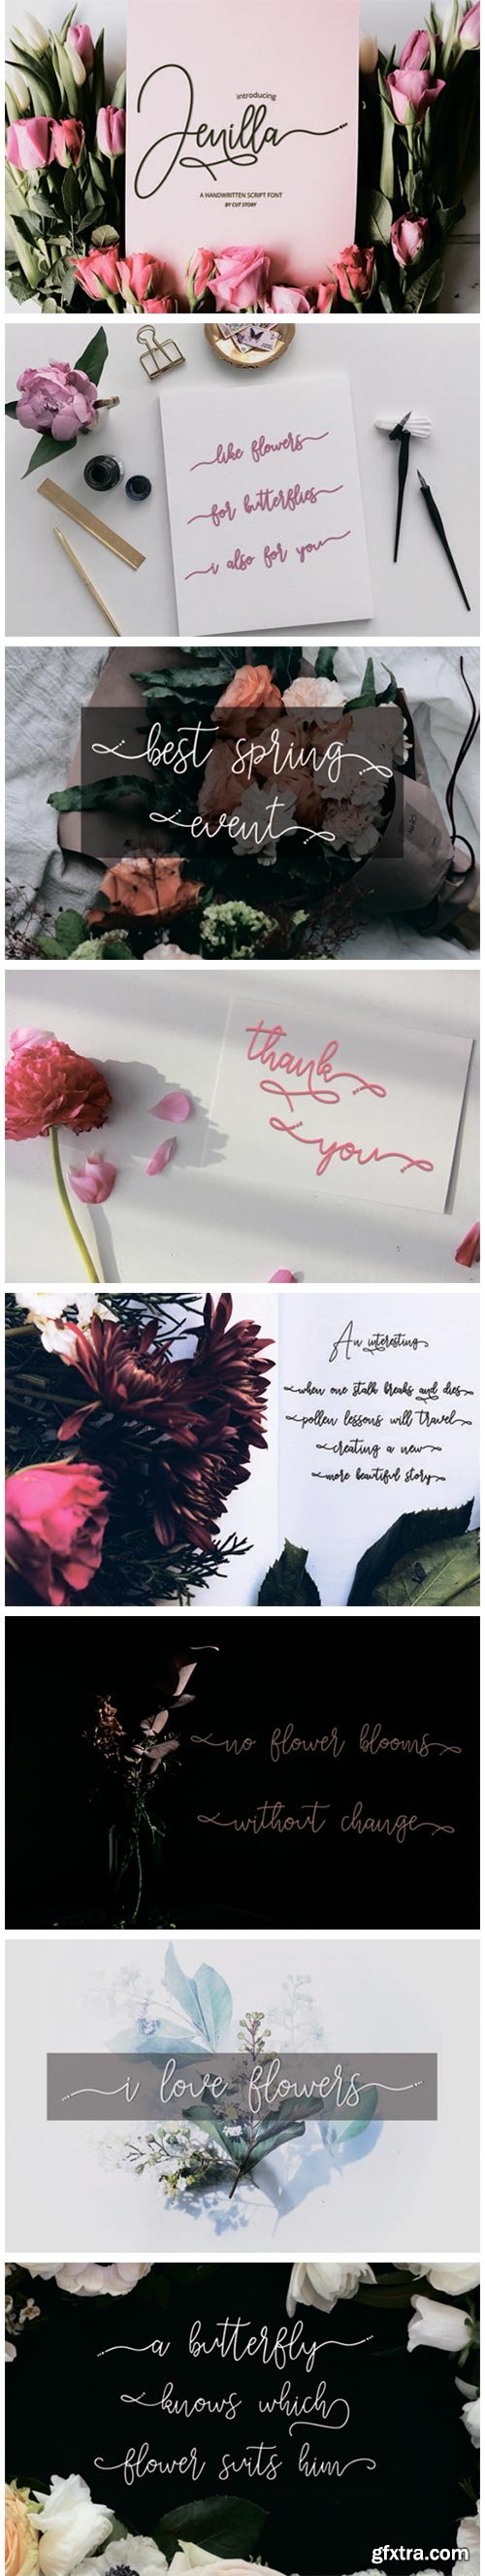 introducing
Jenilla
A HANDWRITTEN SCRIPT FONT
BY CUT STORY
like flowers
for butterflies
i also for you
best spring
event
thank
you
An interesting
when one stalk breaks and dies
pollen lessons will travel
creating a new
more beautiful story
no flower blooms
without change
i love flowers
a butterfly
knows which
flower suits him
gfxtra.com